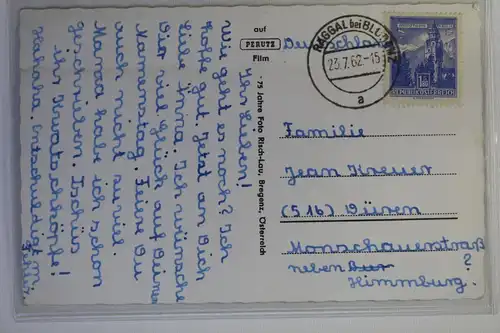 Ihr Lieben!
Wie geht es noch? Ich
hoffe gut. Jetzt an Dich
liebe Anna. Ich wünsche
Dir viel Glück auf Deinem
Namenstag. Feiere Du
auch nicht zu viel.
Mama habe ich schon
geschrieben. Tschüs
ihr Kwatschköpfe!
Hahaha. Entschuldigt m.
auf
PERUTZ
Film
· 75 Jahre Foto Risch-Lau, Bregenz, Österreich
Deutschland
RAGGAL bei BLUDENZ
23.7.62-15
a
REPUBLIK ÖSTERREICH
Familie
Jean Kreuer
(516) Düren
Monschauerstraß
?
neben
Himmburg.